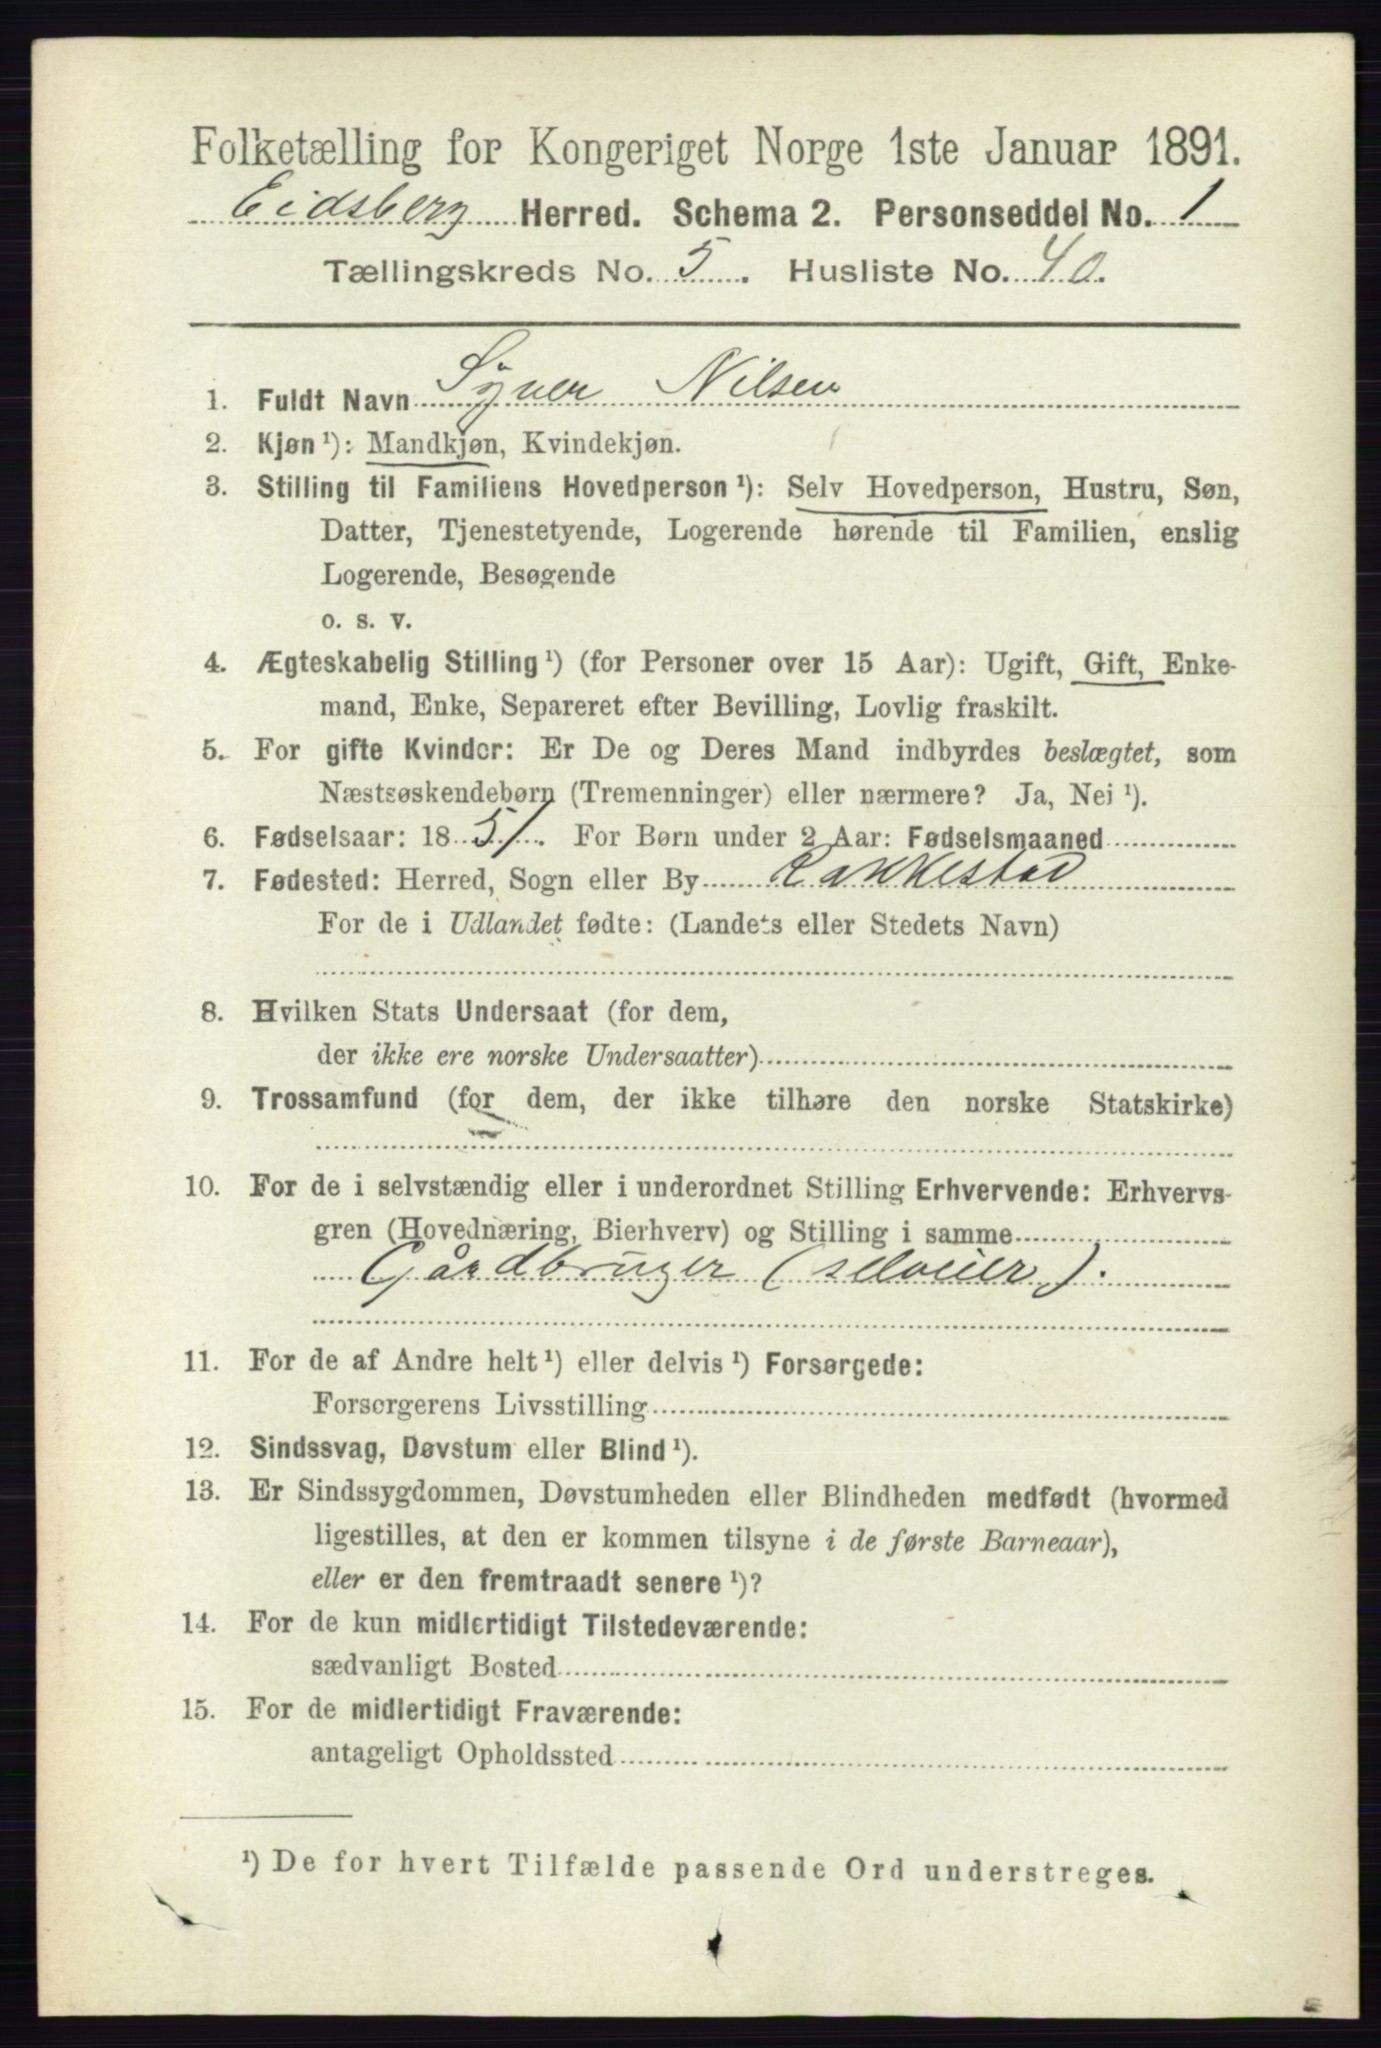 Folketælling for Kongeriget Norge 1ste Januar 1891.
Eidsberg Herred. Schema 2. Personseddel No. 1
Tællingskreds No. 5. Husliste No. 40.
1. Fuldt Navn Syver Nilsen
2. Kjøn ¹): Mandkjøn, Kvindekjøn.
3. Stilling til Familiens Hovedperson ¹): Selv Hovedperson, Hustru, Søn,
Datter, Tjenestetyende, Logerende hørende til Familien, enslig
Logerende, Besøgende
o. s. v.
4. Ægteskabelig Stilling ¹) (for Personer over 15 Aar): Ugift, Gift, Enke-
mand, Enke, Separeret efter Bevilling, Lovlig fraskilt.
5. For gifte Kvinder: Er De og Deres Mand indbyrdes beslægtet, som
Næstsøskendebørn (Tremenninger) eller nærmere? Ja, Nei ¹).
6. Fødselsaar: 1851. For Børn under 2 Aar: Fødselsmaaned
7. Fødested: Herred, Sogn eller By Rakkestad
For de i Udlandet fødte: (Landets eller Stedets Navn)
8. Hvilken Stats Undersaat (for dem,
der ikke ere norske Undersaatter)
9. Trossamfund (for dem, der ikke tilhøre den norske Statskirke)
10. For de i selvstændig eller i underordnet Stilling Erhvervende: Erhvervs-
gren (Hovednæring, Bierhverv) og Stilling i samme
Gårdbruger (selveier).
11. For de af Andre helt ¹) eller delvis ¹) Forsørgede:
Forsørgerens Livsstilling
12. Sindssvag, Døvstum eller Blind ¹).
13. Er Sindssygdommen, Døvstumheden eller Blindheden medfødt (hvormed
ligestilles, at den er kommen tilsyne i de første Barneaar),
eller er den fremtraadt senere ¹)?
14. For de kun midlertidigt Tilstedeværende:
sædvanligt Bosted
15. For de midlertidigt Fraværende:
antageligt Opholdssted
¹) De for hvert Tilfælde passende Ord understreges.